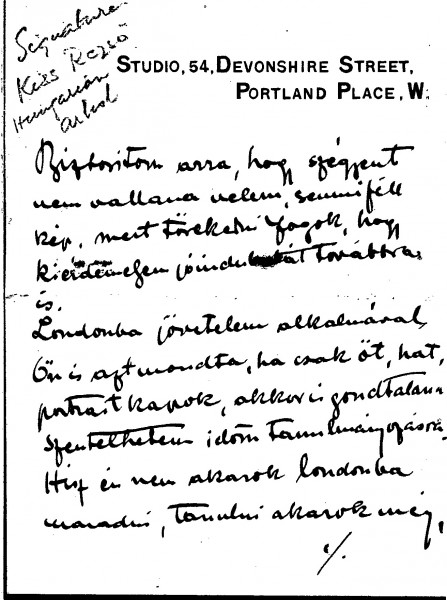 Signature
Kiss Rezső
Hungarian
artist
STUDIO, 54, DEVONSHIRE STREET,
PORTLAND PLACE, W.
Biztosítom arra, hogy szégyent
nem vallana velem, semmiféle
kép, mert törekedni fogok, hogy
kiérdemeljem jóindulatát továbbra
is.
Londonba jövetelem alkalmával
Ön is azt mondta, ha csak öt, hat,
portrait kapok, akkor is gondtalanul
szentelhetem időm tanulmányozásra.
Hisz én nem akarok londonba
maradni, tanulni akarok még,
./.